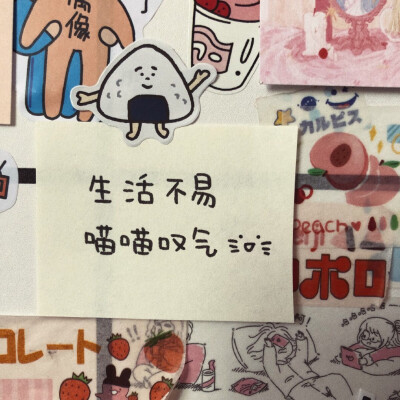 偶像
カルピス
生活不易
喵喵叹气
Peach
ポロ
コレート